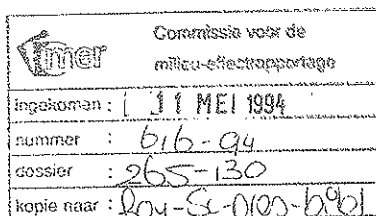 mer
Commissie voor de
milieu-effectrapportage
ingekomen : 11 MEI 1994
nummer : 616-94
dossier : 265-130
kopie naar :